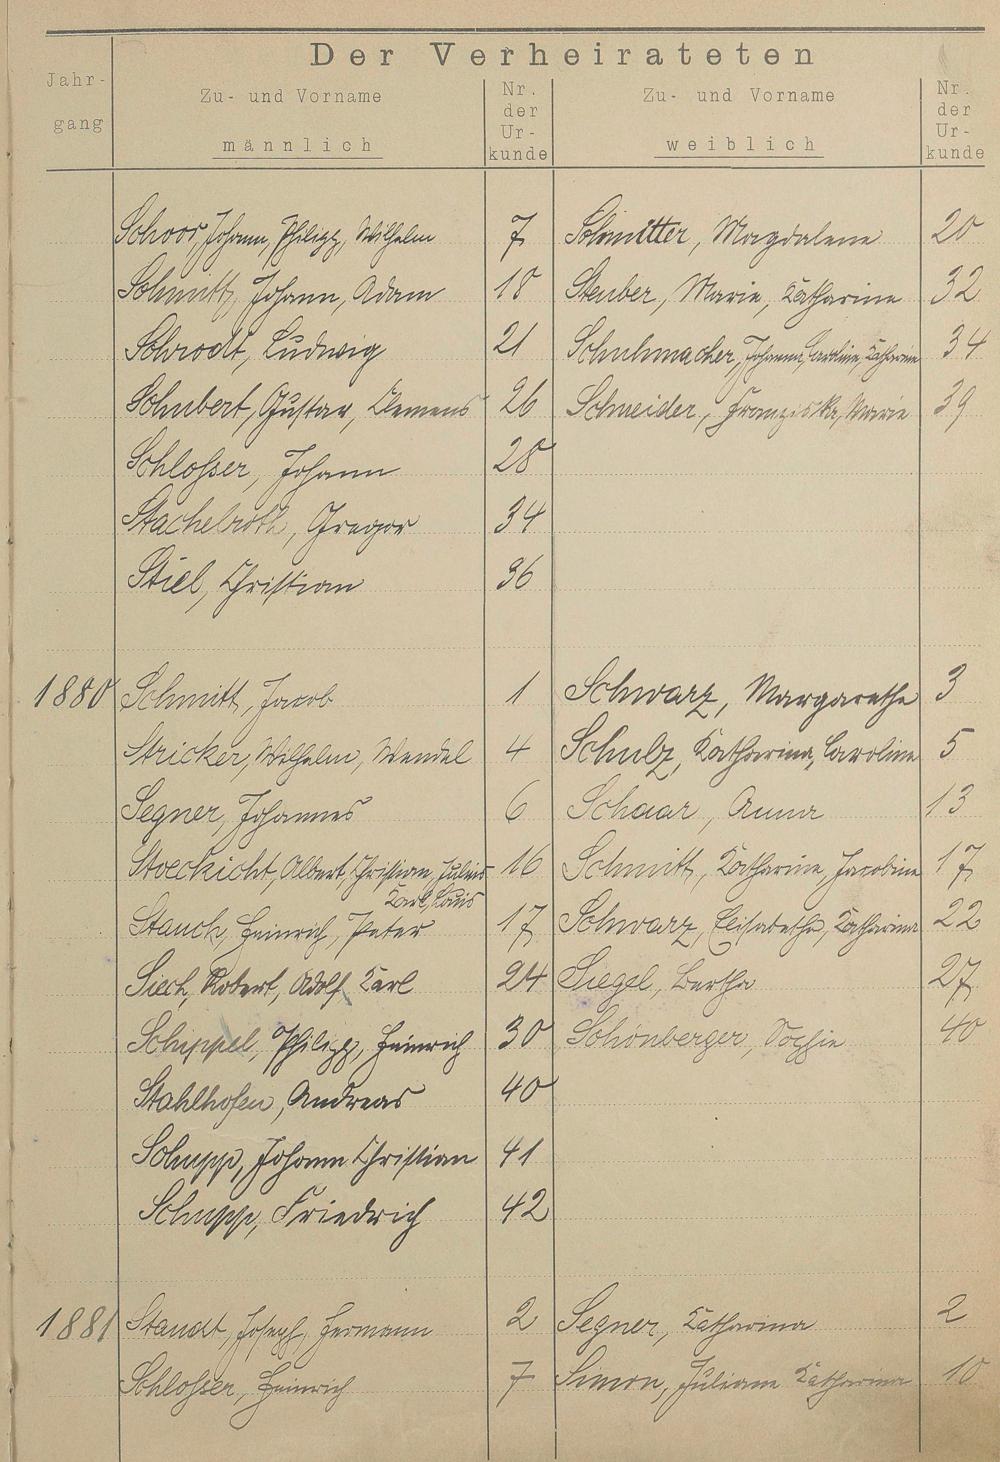 Der Verheirateten
Jahrgang
Zu- und Vorname
männlich
Nr. der Urkunde
Zu- und Vorname
weiblich
Nr. der Urkunde
Schoor, Johann, Philipp, Wilhelm 7 Schmitter, Magdalene 20
Schmitt, Johann, Adam 18 Steuber, Marie, Katharine 32
Schrodt, Ludwig 21 Schuhmacher, Johanna, Caroline, Katharine 34
Schubert, Gustav, Clemens 26 Schneider, Franziska, Marie 39
Schlosser, Johann 28
Stachelroth, Gregor 34
Stiel, Christian 36
1880 Schmitt, Jacob 1 Schwarz, Margarethe 3
Stricker, Wilhelm, Wendel 4 Schulz, Katharina, Caroline 5
Segner, Johannes 6 Schaar, Anna 13
Stoeckicht, Albert, Christian, Julius 16 Schmitt, Katharine, Jacobine 17
Karl, Louis
Stauch, Heinrich, Peter 17 Schwarz, Elisabetha, Katharina 22
Siech, Robert, Adolf Karl 24 Siegel, Bertha 27
Schippel, Philipp, Heinrich 30 Schönberger, Sophie 40
Stahlhofen, Andreas 40
Schupp, Johann Christian 41
Schupp, Friedrich 42
1881 Staudt, Joseph, Hermann 2 Segner, Katharina 2
Schlosser, Heinrich 7 Simon, Juliane Katharina 10